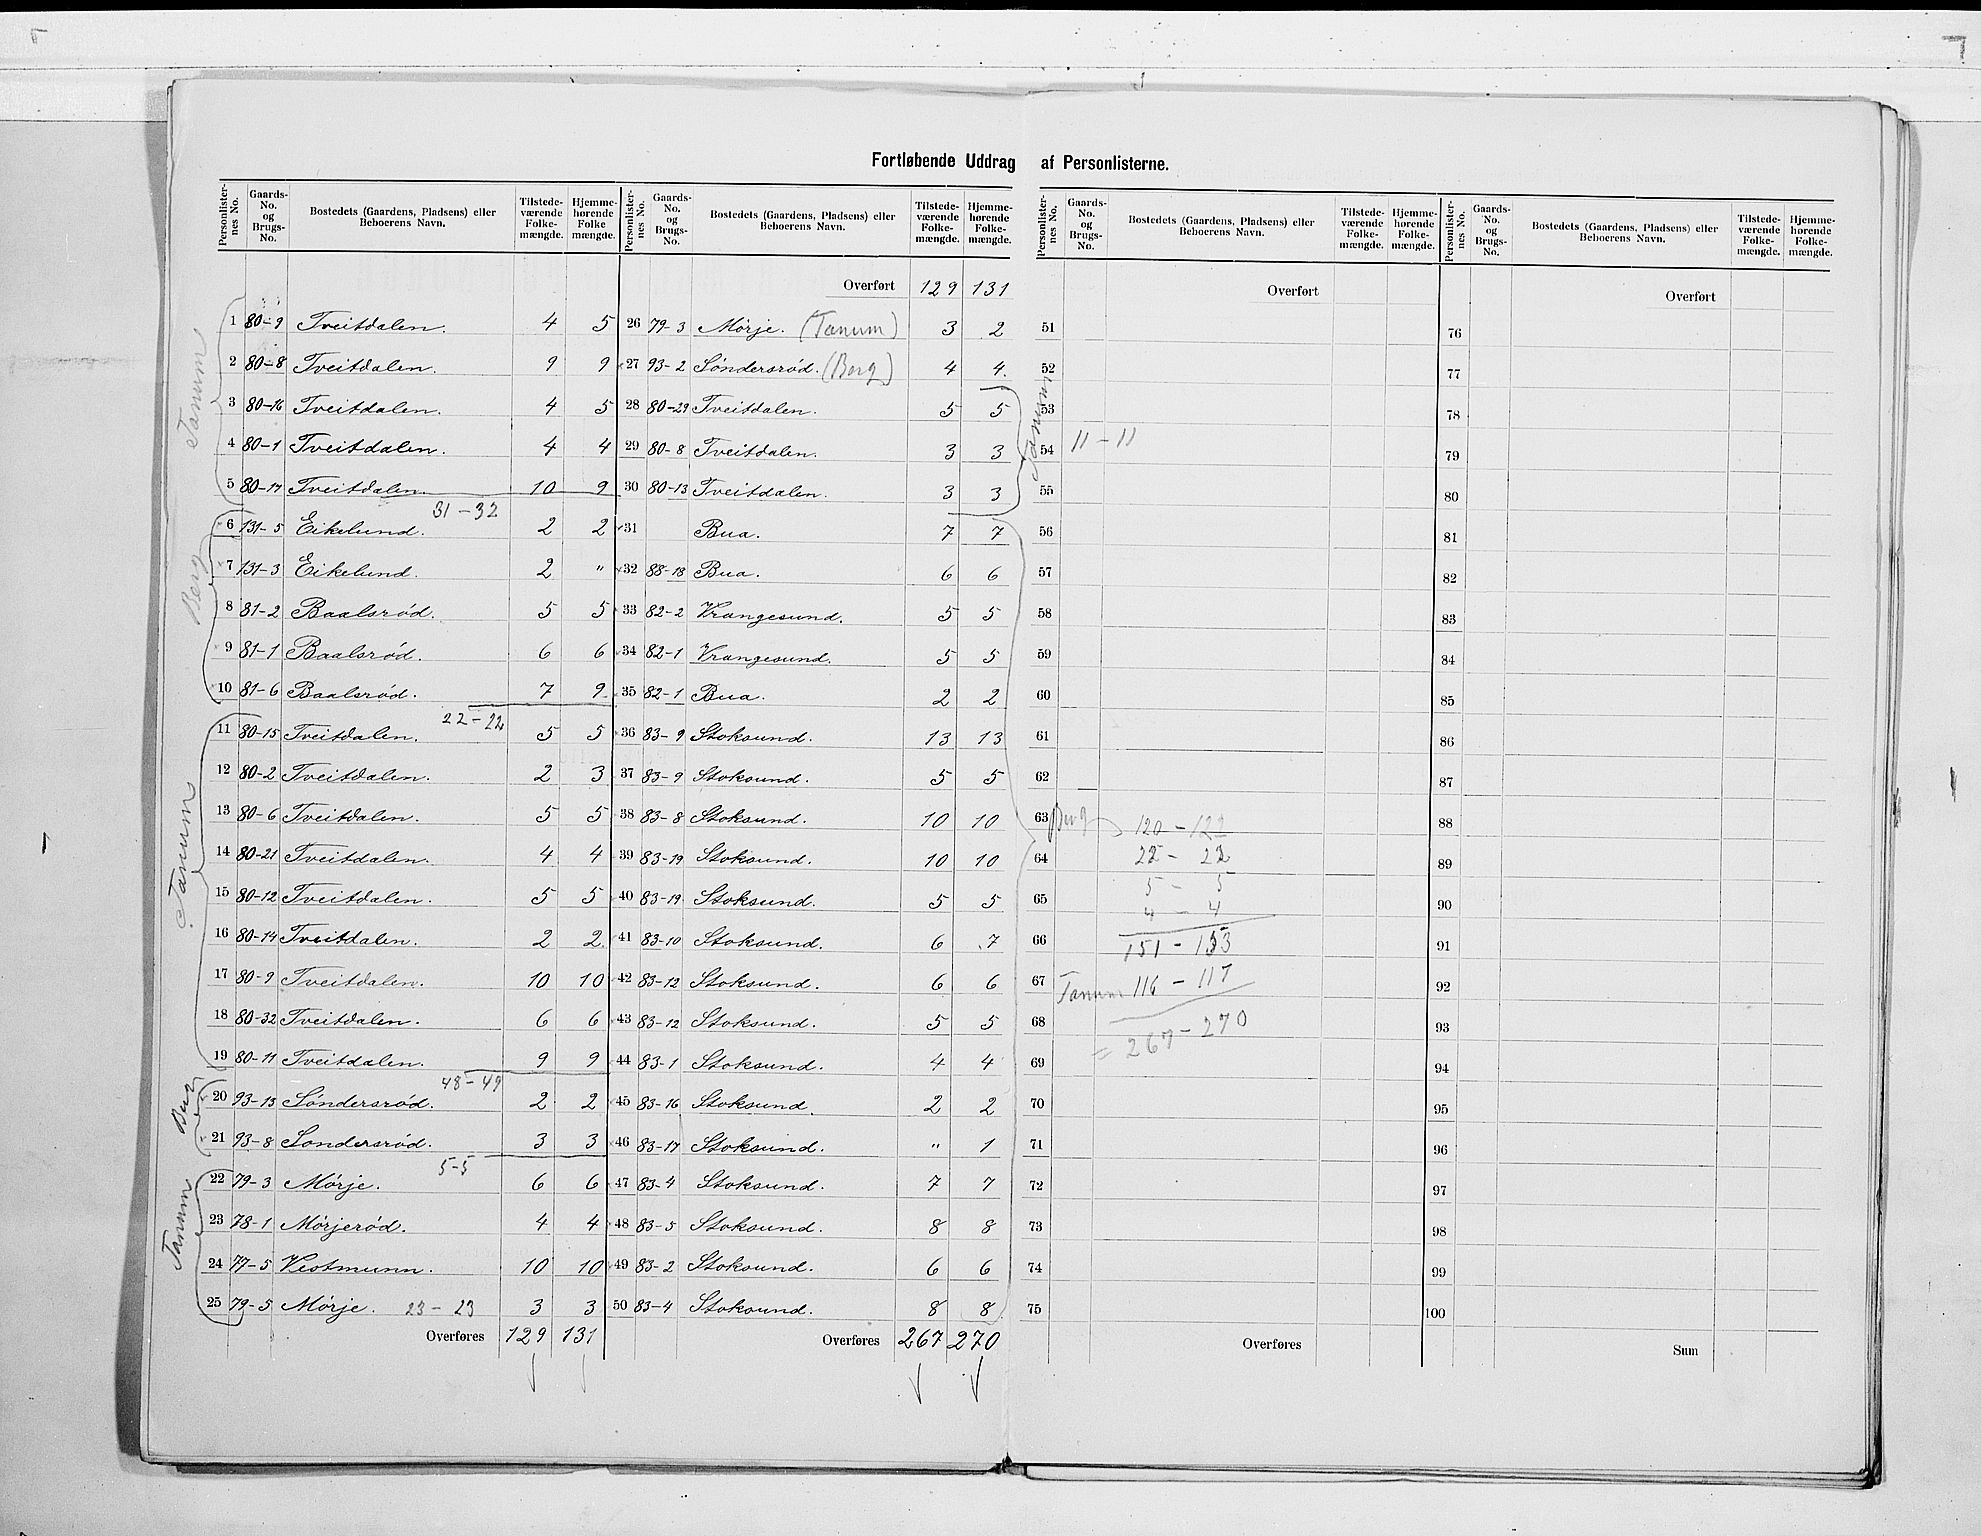 Fortløbende Uddrag af Personlisterne.
Personlister-nes No. | Gaards-No. og Brugs-No. | Bostedets (Gaardens, Pladsens) eller Beboerens Navn. | Tilstede-værende Folke-mængde. | Hjemme-hørende Folke mængde.
1 80-9 Tveitdalen. 4 5
2 80-8 Tveitdalen. 9 9
3 80-16 Tveitdalen. 4 5
4 80-1 Tveitdalen. 4 4
5 80-17 Tveitdalen. 10 9
Tanum
31-32
6 131-5 Eikelund. 2 2
7 131-3 Eikelund. 2 "
8 81-2 Baalsrød. 5 5
9 81-1 Baalsrød. 6 6
10 81-6 Baalsrød. 7 9
Berg
22-22
11 80-15 Tveitdalen. 5 5
12 80-2 Tveitdalen. 2 3
13 80-6 Tveitdalen. 5 5
14 80-21 Tveitdalen. 4 4
15 80-12 Tveitdalen. 5 5
16 80-14 Tveitdalen. 2 2
17 80-9 Tveitdalen. 10 10
18 80-32 Tveitdalen. 6 6
19 80-11 Tveitdalen. 9 9
Tanum
48-49
20 93-13 Søndersrød. 2 2
21 93-8 Søndersrød. 3 3
Berg
5-5
22 79-3 Mørje. 6 6
23 78-1 Mørjerød. 4 4
24 77-5 10 10
25 79-5 Mørje. 23-23 3 3
Tanum
Overføres 129 131
Personlister-nes No. | Gaards-No. og Brugs-No. | Bostedets (Gaardens, Pladsens) eller Beboerens Navn. | Tilstede-værende Folke-mængde. | Hjemme-hørende Folke-mængde.
Overført 129 131
26 79-3 Mørje. (Tanum) 3 2
27 93-2 Søndersrød. (Berg) 4 4.
28 80-29 Tveitdalen. 5 5
29 80-8 Tveitdalen. 3 3
30 80-13 Tveitdalen. 3 3
Tanum
31 Bua. 7 7
32 88-18 Bua. 6 6
33 82-2 Vrangesund. 5 5
34 82-1 Vrangesund. 5 5
35 82-1 Bua. 2 2
36 83-9 Stoksund. 13 13
37 83-9 Stoksund. 5 5
38 83-8 Stoksund. 10 10
39 83-19 Stoksund. 10 10
40 83-19 Stoksund. 5 5
41 83-10 Stoksund. 6 7
42 83-12 Stoksund. 6 6
43 83-12 Stoksund. 5 5
44 83-1 Stoksund. 4 4
45 83-16 Stoksund. 2 2
46 83-17 Stoksund. " 1
47 83-4 Stoksund. 7 7
48 83-5 Stoksund. 8 8
49 83-2 Stoksund. 6 6
50 83-4 Stoksund. 8 8
Overføres 267 270
Personlister-nes No. | Gaards-No. og Brugs-No. | Bostedets (Gaardens, Pladsens) eller Beboerens Navn. | Tilstede-værende Folke-mængde. | Hjemme-hørende Folke-mængde.
Overført
51
52
53
54 11-11
55
56
57
58
59
60
61
62
63 Berg 120-122
64 22-22
65 5-5
4-4
66 151-153
67 Tanum 116-117
68 = 267-270
69
70
71
72
73
74
75
Overføres
Personlister-nes No. | Gaards-No. og Brugs-No. | Bostedets (Gaardens, Pladsens) eller Beboerens Navn. | Tilstede-værende Folke-mængde. | Hjemme-hørende Folke-mængde.
Overført
76
77
78
79
80
81
82
83
84
85
86
87
88
89
90
91
92
93
94
95
96
97
98
99
100
Sum